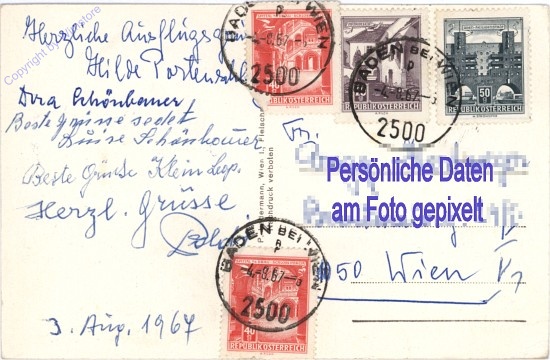 Herzliche Ausflugsgrüsse
Hilde
Dora Schönbauer
Beste Grüsse sendet
Luise Schönbauer
Beste Grüsse Klein Lup.
Herzl. Grüsse
3. Aug. 1967
Copyright by
BADEN BEI WIEN
P
-4.-8.67-
2500
40
REPUBLIK ÖSTERREICH
REPUBLIK ÖSTERREICH
50
REPUBLIK ÖSTERREICH
BADEN BEI WIEN
P
-4.-8.67-
2500
Wien I., Fleischm
chdruck verboten
Persönliche Daten
am Foto gepixelt
1050 Wien
BADEN BEI WIEN
P
-4.-8.67-
2500
40
REPUBLIK ÖSTERREICH